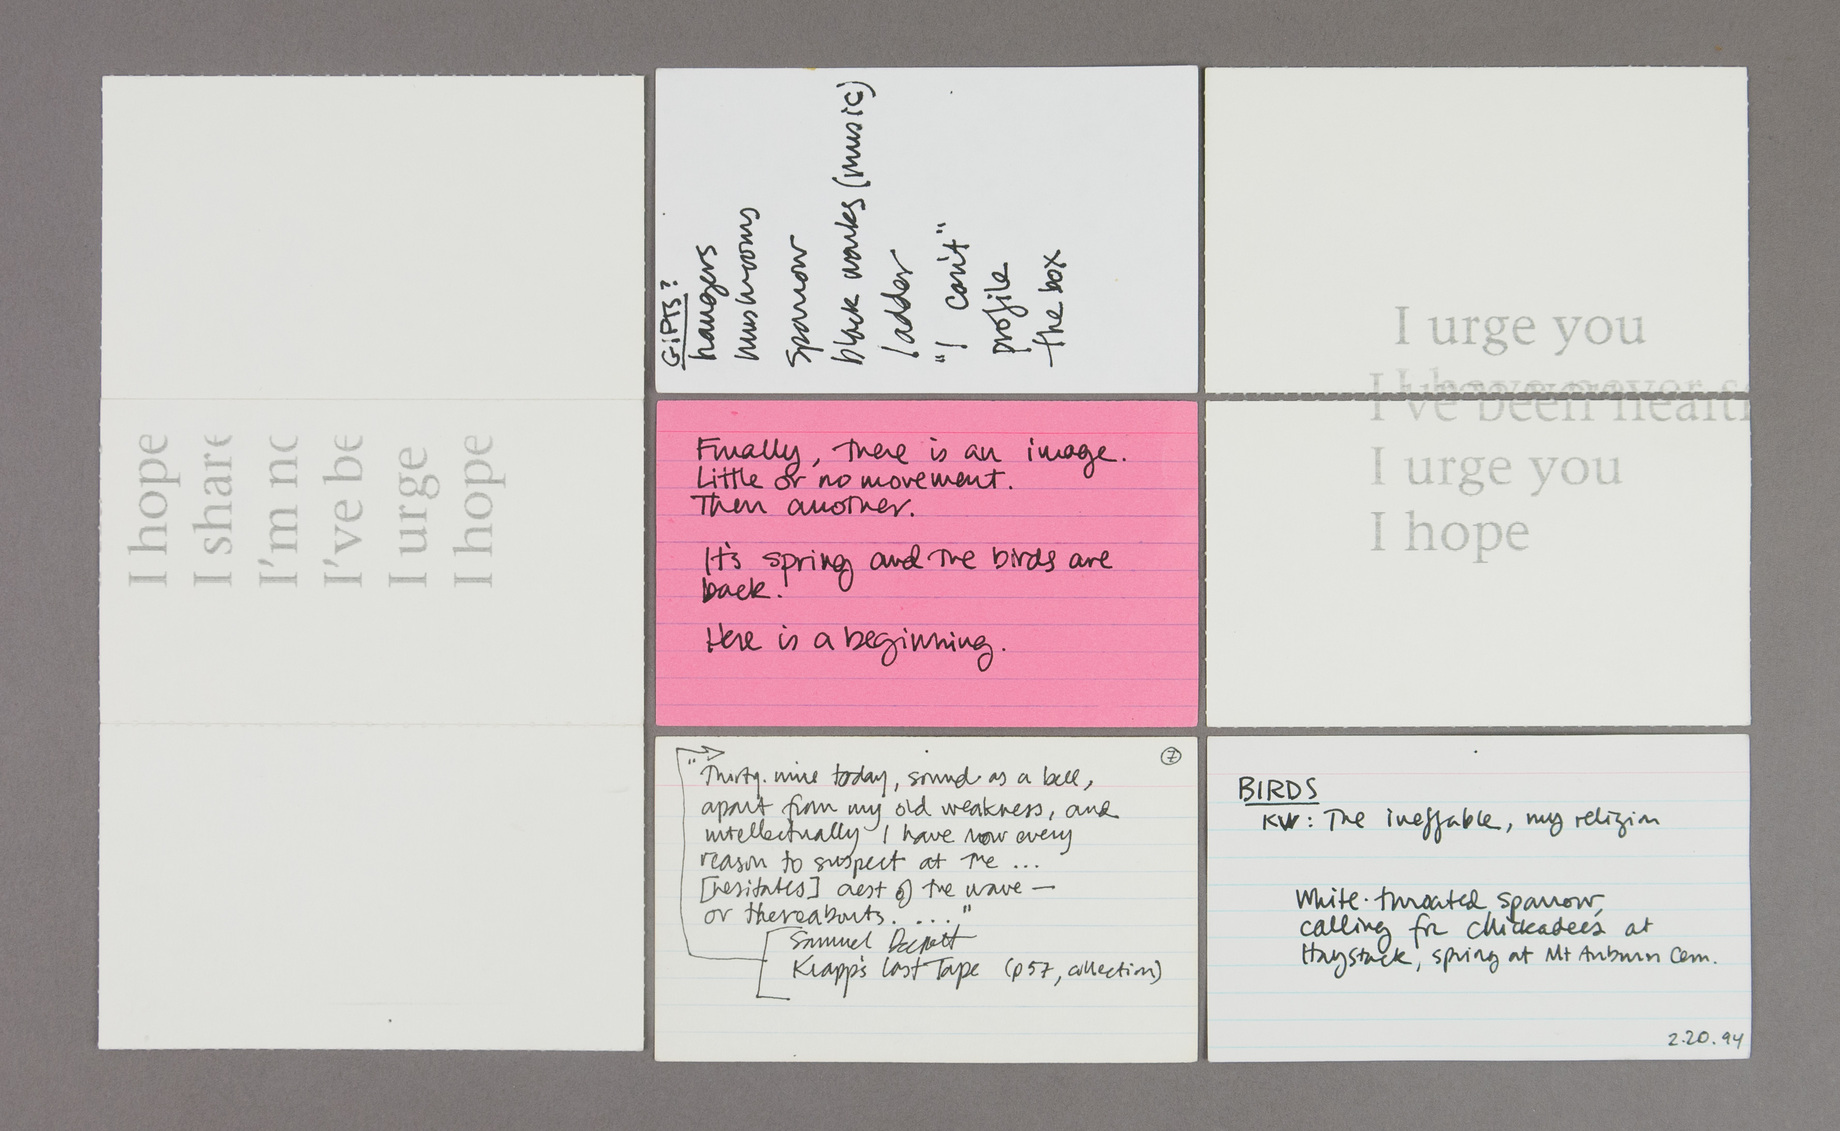 I hope
I share
I'm no
I've be
I urge
I hope
GIFTS?
hangers
mushrooms
sparrow
black works (music)
ladder
"I can't"
profile
the box
Finally, there is an image.
Little or no movement.
Then another.
It's spring and the birds are
back.
Here is a beginning.
7
"Thirty-nine today, sound as a bell,
apart from my old weakness, and
intellectually I have now every
reason to suspect at the ...
[hesitates] crest of the wave —
or thereabouts. ...."
Samuel Beckett
Krapp's Last Tape (p57, collection)
I urge you
I have never s
I've been heart
I urge you
I hope
BIRDS
KW: The ineffable, my religion
White-throated sparrow,
calling for chickadees at
Haystack, spring at Mt Auburn Cem.
2.20.94